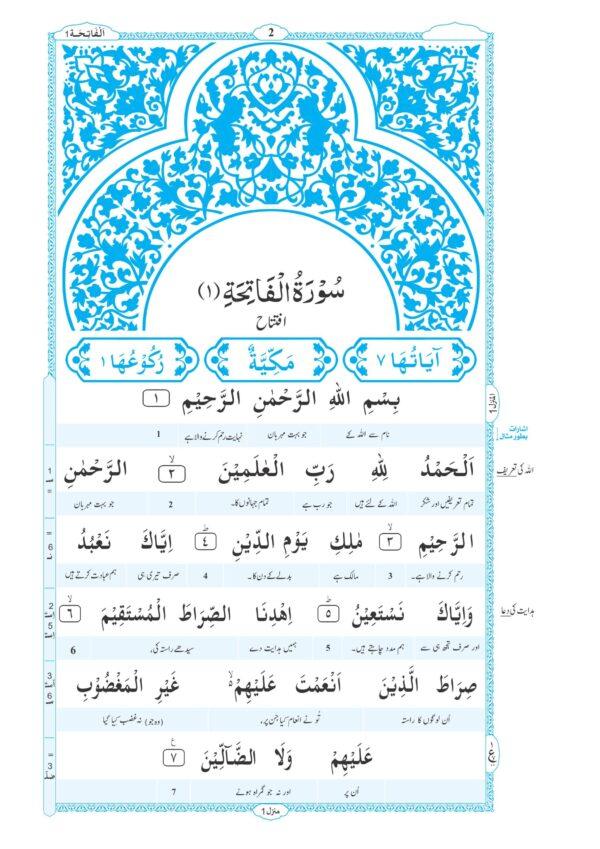 الْفَاتِحَة ١
2
سُوْرَةُ الْفَاتِحَةِ (١)
افتتاح
اٰيَاتُهَا ٧
مَكِّيَّةٌ
رُكُوْعُهَا ١
بِسْمِ اللهِ الرَّحْمٰنِ الرَّحِيْمِ ١
نام سے اللہ کے جو بہت مہربان نہایت رحم کرنے والا ہے 1
اَلْحَمْدُ لِلّٰهِ رَبِّ الْعٰلَمِيْنَ ٢ الرَّحْمٰنِ
تمام تعریفیں اور شکر اللہ کے لئے ہیں جو رب ہے تمام جہانوں کا۔ 2 جو بہت مہربان
الرَّحِيْمِ ٣ مٰلِكِ يَوْمِ الدِّيْنِ ٤ اِيَّاكَ نَعْبُدُ
رحم کرنے والا ہے۔ 3 مالک ہے بدلے کے دن کا۔ 4 صرف تیری ہی ہم عبادت کرتے ہیں
وَاِيَّاكَ نَسْتَعِيْنُ ٥ اِهْدِنَا الصِّرَاطَ الْمُسْتَقِيْمَ ٦
اور صرف تجھ ہی سے ہم مدد چاہتے ہیں۔ 5 ہمیں ہدایت دے سیدھے راستہ کی، 6
صِرَاطَ الَّذِيْنَ اَنْعَمْتَ عَلَيْهِمْ غَيْرِ الْمَغْضُوْبِ
اُن لوگوں کا راستہ تُو نے انعام کیا جن پر، (وہ جو) نہ غضب کیا گیا
عَلَيْهِمْ وَلَا الضَّآلِّيْنَ ٧
اُن پر اور نہ جو گمراہ ہوئے 7
منزل 1
المنزل 1
اشارات
بطور مثال
اللہ کی تعریف
ہدایت کی دعا